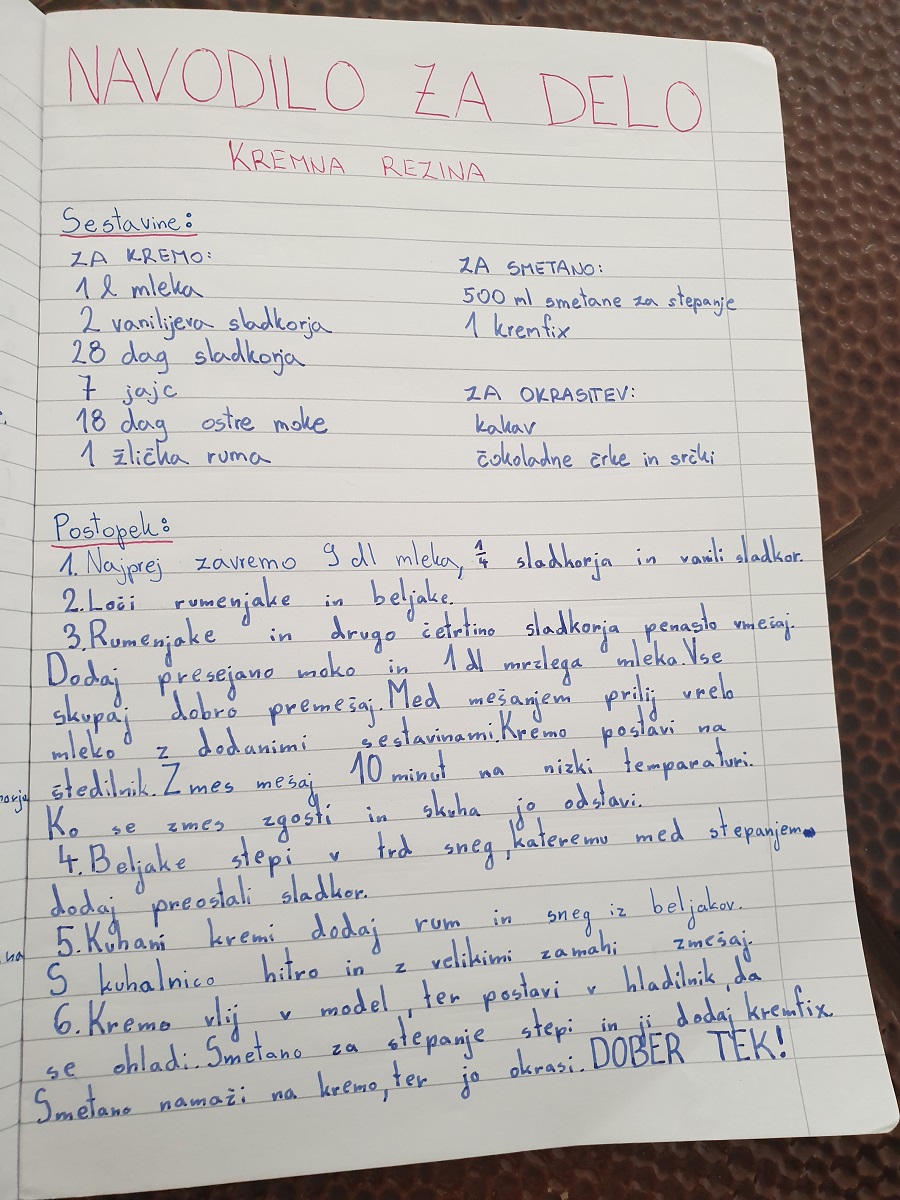 NAVODILO ZA DELO
KREMNA REZINA
Sestavine:
ZA KREMO:
1 l mleka
2 vanilijeva sladkorja
28 dag sladkorja
7 jajc
18 dag ostre moke
1 žlička ruma
ZA SMETANO:
500 ml smetane za stepanje
1 kremfix
ZA OKRASITEV:
kakav
čokoladne črke in srčki
Postopek:
1. Najprej zavremo 9 dl mleka, 1/4 sladkorja in vanili sladkor.
2. Loči rumenjake in beljake.
3. Rumenjake in drugo četrtino sladkorja penasto vmešaj.
Dodaj presejano moko in 1 dl mrzlega mleka. Vse
skupaj dobro premešaj. Med mešanjem prilij vrelo
mleko z dodanimi sestavinami. Kremo postavi na
štedilnik. Zmes mešaj 10 minut na nizki temparaturi.
Ko se zmes zgosti in skuha jo odstavi.
4. Beljake stepi v trd sneg, kateremu med stepanjem
dodaj preostali sladkor.
5. Kuhani kremi dodaj rum in sneg iz beljakov.
S kuhalnico hitro in z velikimi zamahi zmešaj.
6. Kremo vlij v model, ter postavi v hladilnik, da
se ohladi. Smetano za stepanje stepi in ji dodaj kremfix.
Smetano namaži na kremo, ter jo okrasi. DOBER TEK!
na